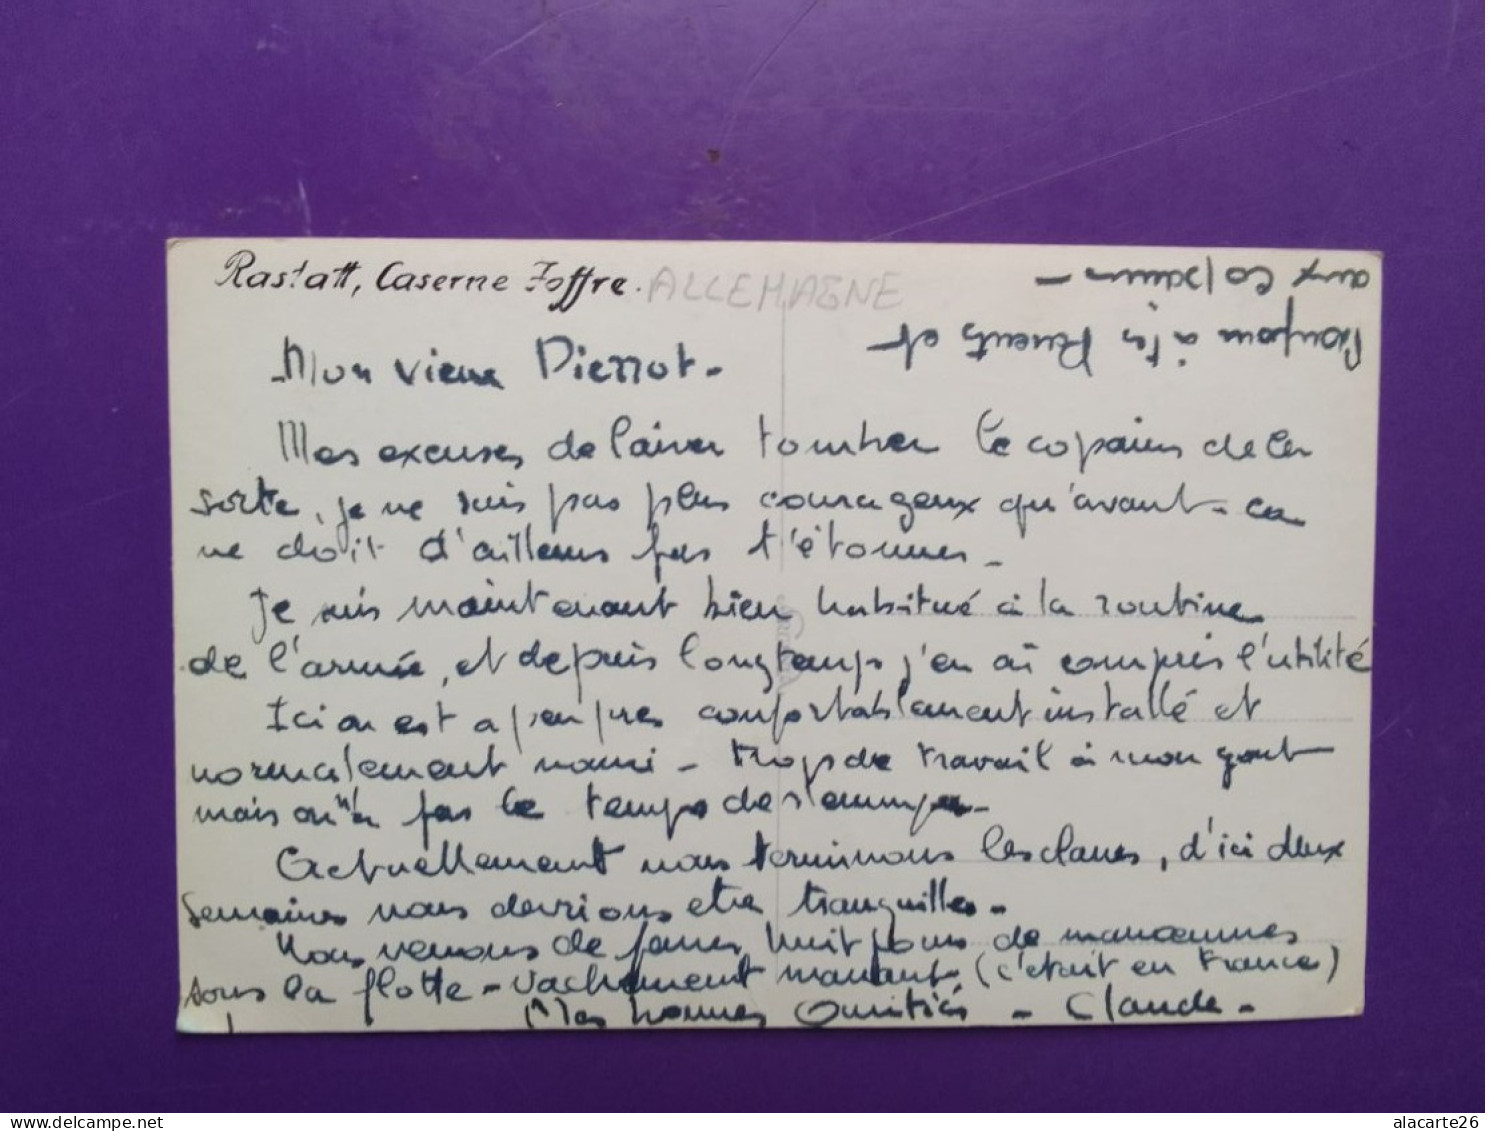 Rastatt, Caserne Joffre. ALLEMAGNE
Mon vieux Pierrot.
Mes excuses de laisser tomber le copains de la
sorte, je ne suis pas plus courageux qu'avant - ca
ne doit d'ailleurs pas t'étonner -
Je suis maintenant bien habitué à la routine
de l'armée, et depuis longtemps j'en ai compris l'utilité
Ici on est a peu pres confortablement installé et
normalement nourri - trop de travail à mon gout
mais on n'a pas le temps de s'ennuyer -
Actuellement nous terminons les classes, d'ici deux
semaines nous devrions etre tranquilles -
Nous venons de faire huit jours de manoeuvres
sous la flotte - vachement marrant (c'etait en France)
Mes bonnes Amitiés - Claude -
Bonjour à tes Parents et
aux Copains -
alacarte26